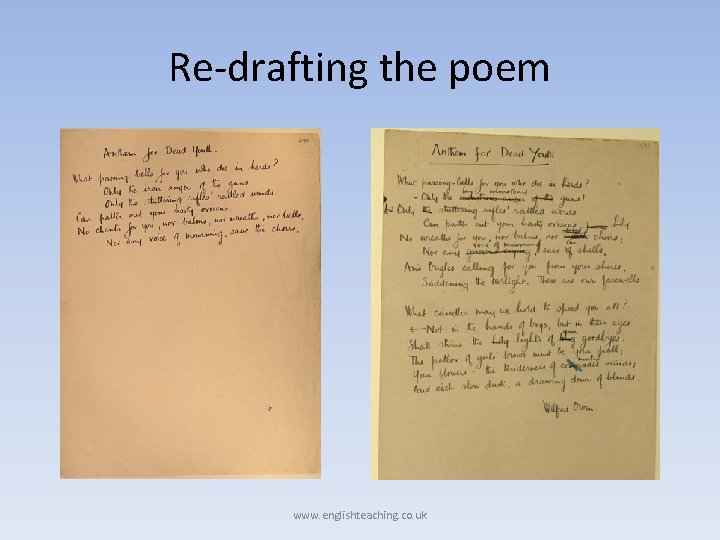 Re-drafting the poem
Anthem for Dead Youth.
What passing-bells for you who die in herds?
Only the iron anger of the guns
Only the stuttering rifles' rattled words
Can patter out your hasty orisons.
No chants for you, nor balms, nor wreaths, nor bells,
Nor any voice of mourning, save the choirs,
Anthem for Dead Youth
What passing-bells for you who die in herds?
long monotony
- Only the monstrous anger of the guns!
Only the stuttering rifles' rattled words
Can patter out your hasty orisons
No wreaths for you, nor balms, nor choirs;
voice of mourning
Nor any save of shells,
And bugles calling for you from your shires,
Saddening the twilight. These are our farewells
What candles may we hold to speed you all?
Not in the hands of boys, but in their eyes
Shall shine the holy lights of goodbyes.
your
The pallor of girls' brows must be your pall;
Your flowers the tenderness of comrades' minds;
And each slow dusk, a drawing down of blinds
Wilfred Owen
www.englishteaching.co.uk